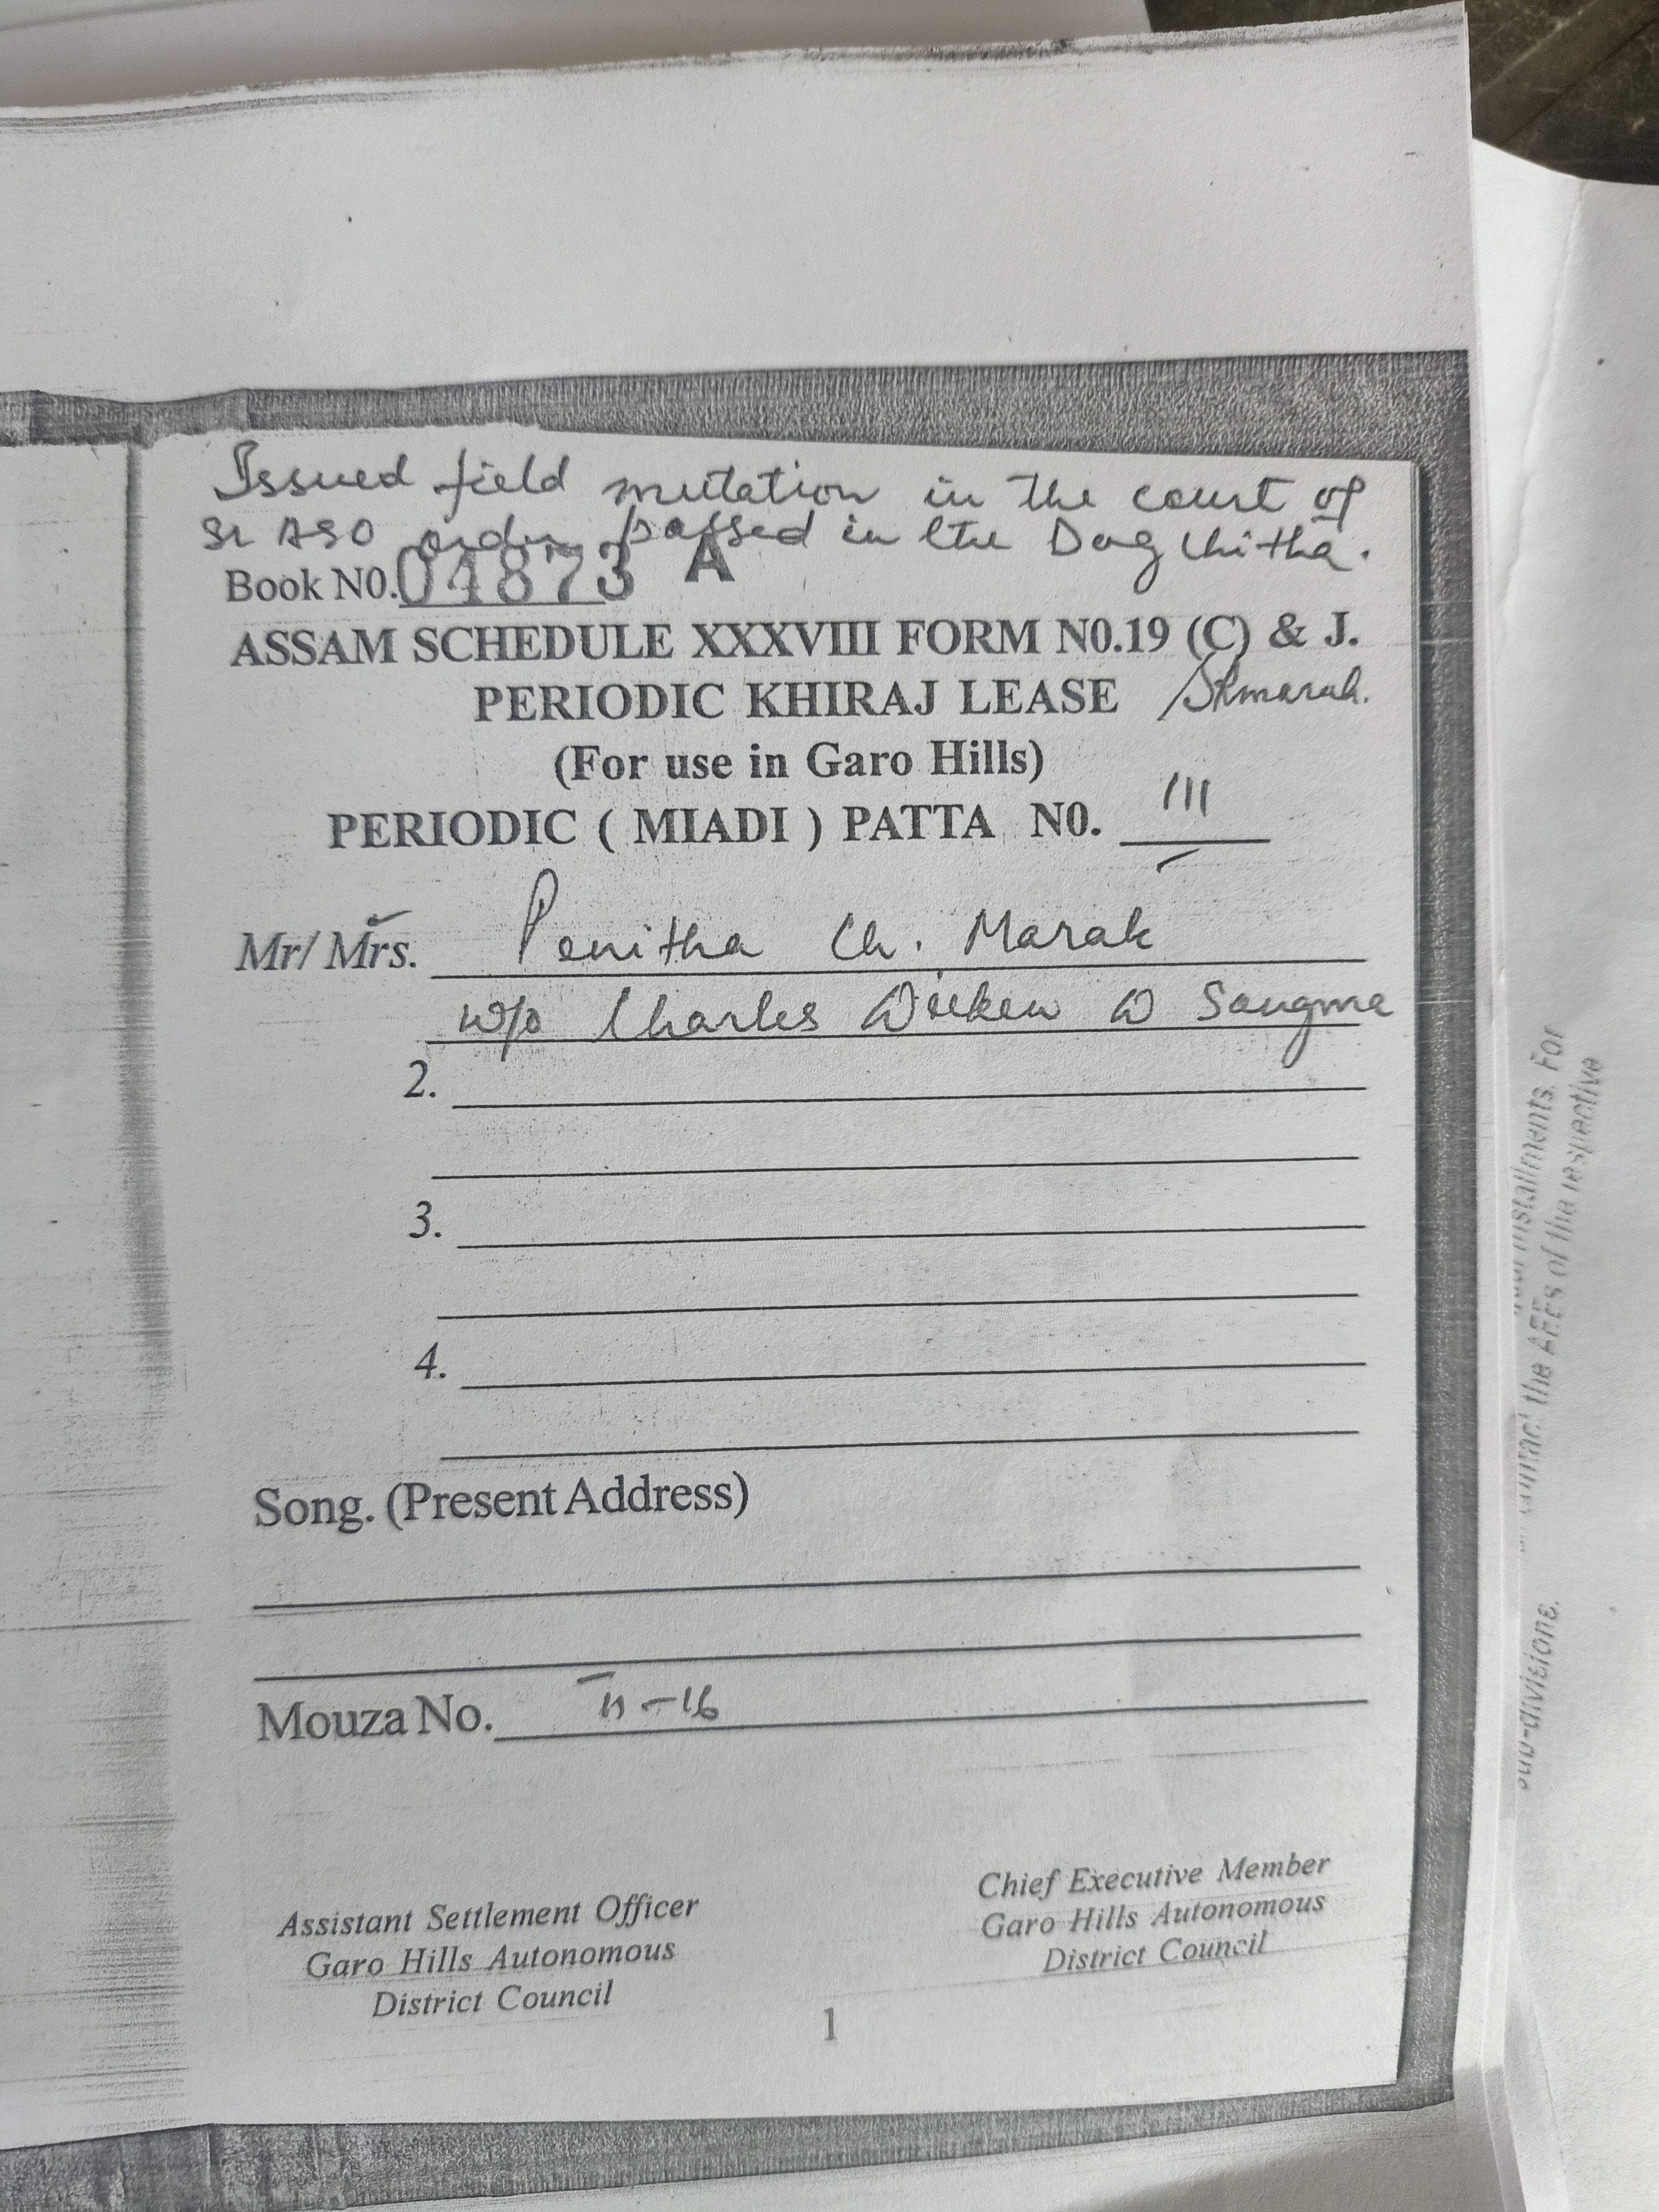 Issued field mutation in the court of
Sr ASO order passed in the Dag Chitha.
Book N0. 04873 A
ASSAM SCHEDULE XXXVIII FORM N0.19 (C) & J.
PERIODIC KHIRAJ LEASE
(For use in Garo Hills)
PERIODIC ( MIADI ) PATTA N0. 111
Mr/ Mrs. Penitha Ch. Marak
w/o Charles D Sangma
2.
3.
4.
Song. (Present Address)
Mouza No. II-16
Assistant Settlement Officer
Garo Hills Autonomous
District Council
Chief Executive Member
Garo Hills Autonomous
District Council
1
installments. For
the AEEs of the respective
sub-divisions.